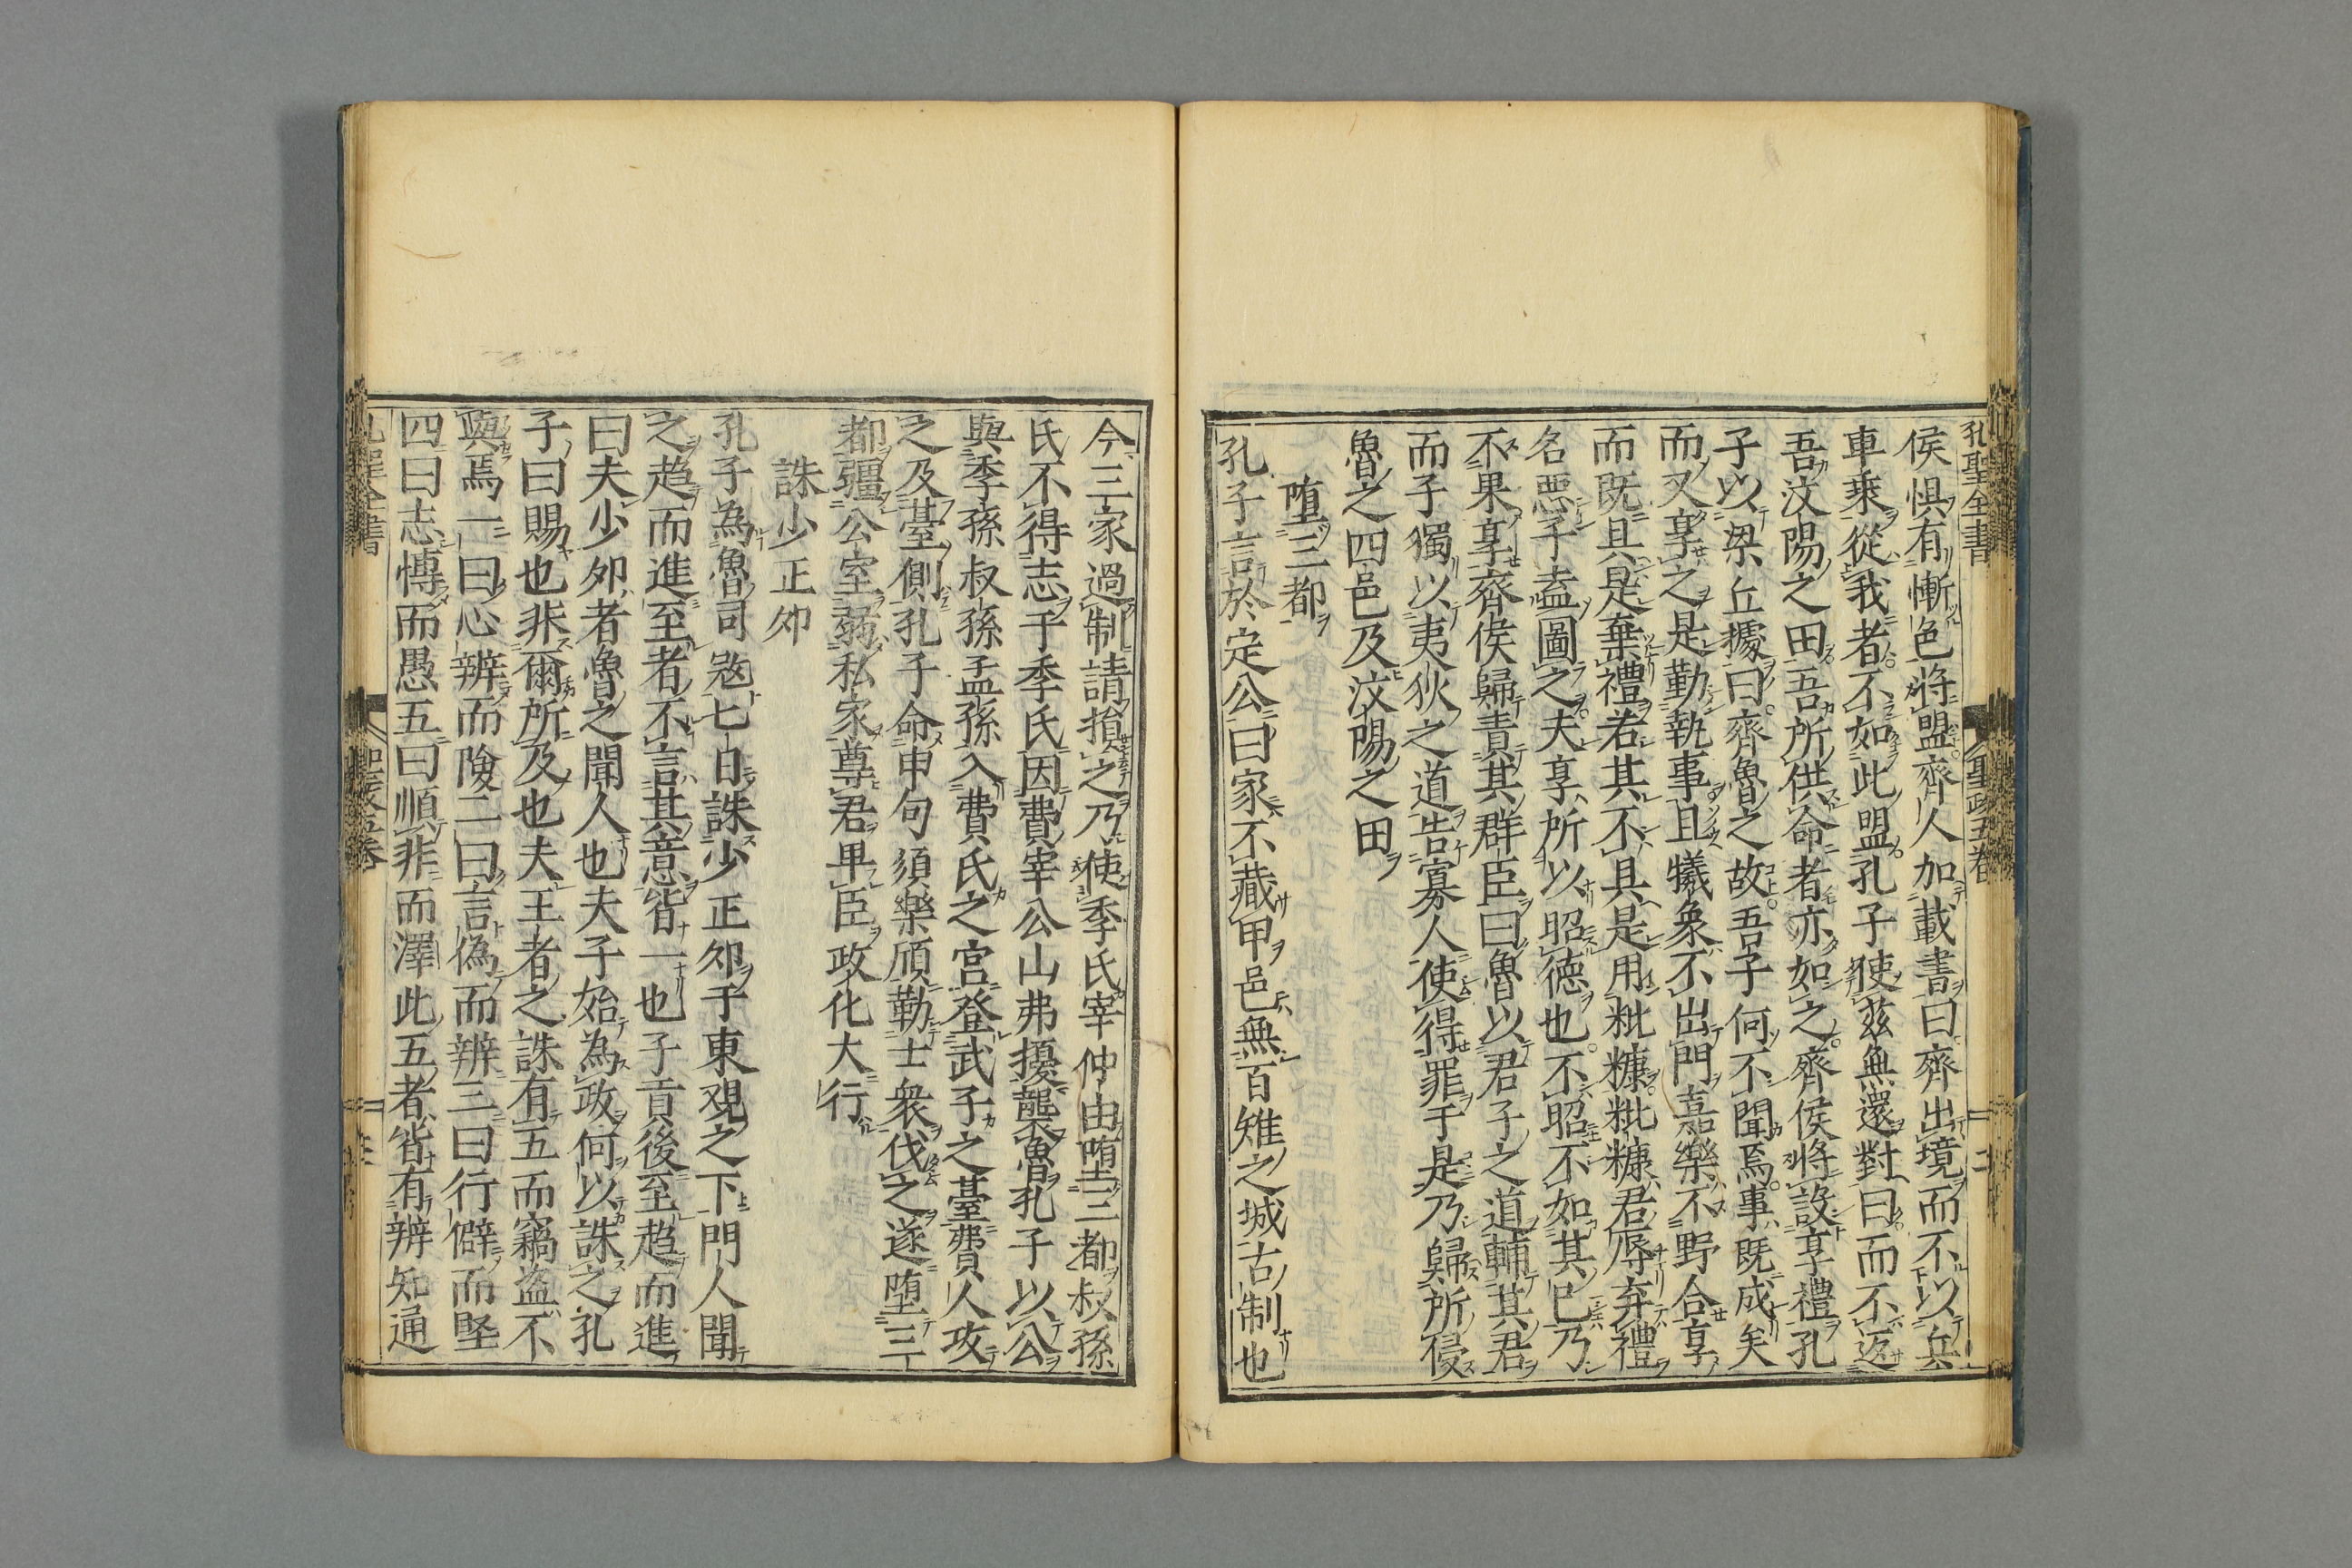 孔聖全書 聖政五卷 二
侯惧有慚色將盟齊人加載書曰齊出境而不以兵
車乘從我者不如此盟孔子使茲無還對曰而不返
吾汶陽之田吾所供命者亦如之齊侯將設享禮孔
子以梁丘據曰齊魯之故吾子何不聞焉事既成矣
而又享之是勤執事且犧象不出門嘉樂不野合享
而既具是棄禮若其不具是用粃糠粃糠君辱弃禮
名惡子盍圖之夫享所以昭德也不昭不如其已乃
不果享齊侯歸責其群臣曰魯以君子之道輔其君
而子獨以夷狄之道告寡人使得罪于是乃歸所侵
魯之四邑及汶陽之田
墮三都
孔子言於定公曰家不藏甲邑無百雉之城古制也
今三家過制請損之乃使季氏宰仲由墮三都叔孫
氏不得志于季氏因費宰公山弗擾襲魯孔子以公
與季孫叔孫孟孫入費氏之宮登武子之臺費人攻
之及臺側孔子命申句須樂頎勒士衆伐之遂墮三
都疆公室弱私家尊君卑臣政化大行
誅少正卯
孔子為魯司寇七日誅少正卯于東觀之下門人聞
之趋而進至者不言其意皆一也子貢後至趋而進
曰夫少卯者魯之聞人也夫子始為政何以誅之孔
子曰賜也非爾所及也夫王者之誅有五而竊盜不
與焉一曰心辨而險二曰言偽而辨三曰行僻而堅
四曰志愽而愚五曰順非而澤此五者皆有辨知通